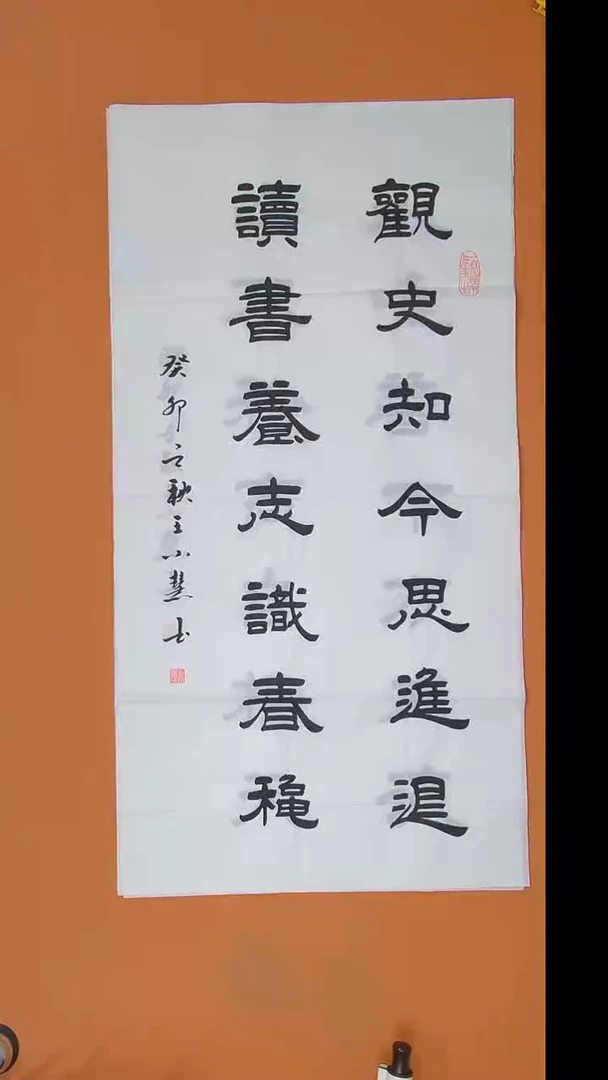 觀史知今思進退
讀書養志識春龝
癸卯之秋王小慧书